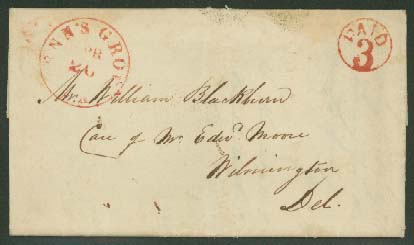 PENN'S GROVE
APR
20
PAID
3
Mr. William Blackburn
Care of Mr Edwd. Moore
Wilmington
Del.